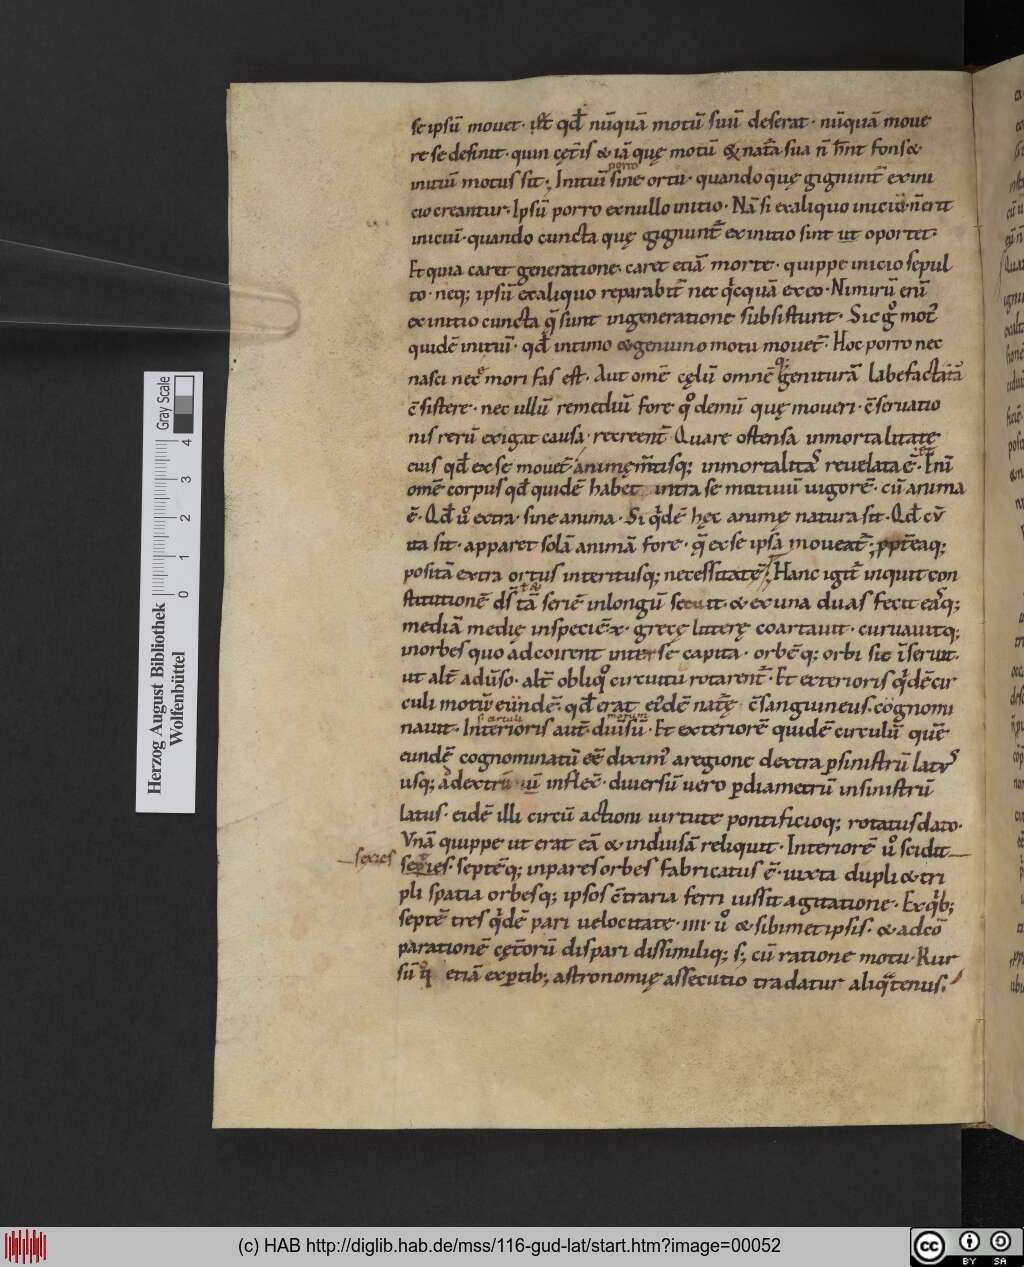 se ipsū mouet· ut̄ qđ nūquā motū suū deserat· nūquā moue
re se definit· quin cęt̄is & iā quę motū & nat̄a sua n̄ hn̄t fons &
porro
initiū motus sit; Initiū sine ortu· quandoquę gignunt̄ ex ini
cio creantur· Ipsū porro ex nullo initio· Nā si ex aliquo iniciū· n̄ erit
iniciū· quando cuncta quę gignunt̄ ex initio sint ut oportet·
Et quia caret generatione· caret etiā morte· quippe inicio sepul
to· neq; ipsū ex aliquo reparabit̄ nec qͥcquā ex eo· Nimirū enī
ex initio cuncta q̄ sunt in generatione subsistunt· Sic gͦ mot̄
quidē initiū· qđ intimo & genuino motu mouet̄· Hoc porro nec
nasci nec mori fas est· Aut omē cęlū omnē geniturā labefactatā
ē sistere· nec ullū remediū fore qͦ demū quę moueri· ē seruatio
nis rerū exigat causa· recreent̄· Quare ostensa inmortalitate
eius qđ ex se mouet̄· animę m̄tisq; inmortalitas reuelata ē· Enī
omē corpus qđ quidē habet intra se motiuū uigorē· cū anima
ē· Qđ uͦ extra· sine anima· Si qͥdē hęc animę natura sit· Qđ cū
ita sit· apparet solā animā fore· q̄ ex se ipsa moueat̄; ppt̄eaq;
positā extra ortus interitusq; necessitatē; Hanc igit̄ inquit con
stitutionē ds̄ tā seriē in longū secuit· & ex una duas fecit easq;
mediā medię in speciē· x· gręcę litterę coartauit· curuauitq;
in orbes quo adcoirent inter se capita· orbēq; orbi sic īseruit·
ut alt̄ aduso· alt̄ obliqͦ circuitu rotarent̄· Et exterioris qͥdē cir
culi motū eiundē· qđ erat eͥdē natę ē sanguineus· cognomi
si circuli motum
nauit· Interioris aut̄ diuͥsū· Et exteriorē quidē circulū quē
eundē cognominatū eē diximͣ a regione dextra p sinistrū latus
usq; ad extrū iū inflex̄· diuersū uero p diametrū in sinistrū
latus· eidē illi circū actioni uirtute pontificioq; rotatus dato·
Vnā quippe ut erat eā & indiuisā reliquit· Interiorē uͦ scidit
sexies
sexies· septēq; inpares orbes fabricatus ē· iuxta dupli & tri
pli spatia orbesq; ipsos c̄traria ferri iussit agitatione· Ex qͥb;
septē tres qͥdē pari uelocitate· IIII uͦ & sibimet ipsis· & ad co
parationē cęt̄orū dispari dissimiliq; s; cū ratione motu· Rur
sū etiā ex ptib; astronomię assecutio tradatur aliqͣtenus·
Herzog August Bibliothek
Wolfenbüttel
0 1 2 3 4
Gray Scale
(c) HAB http://diglib.hab.de/mss/116-gud-lat/start.htm?image=00052
cc BY SA